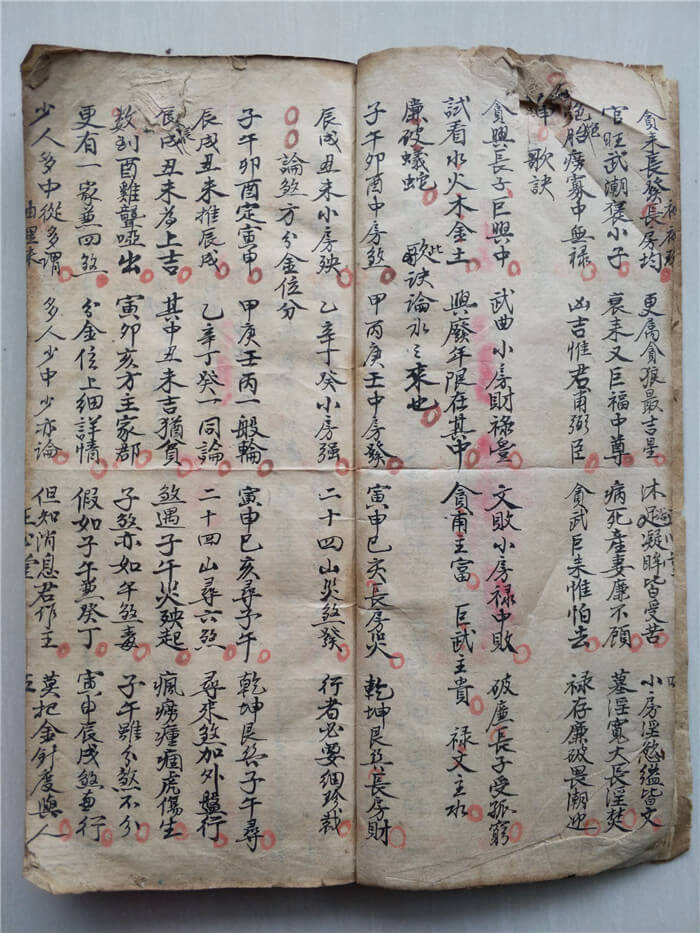 貪來長發長房均 更属貪狼最吉星 沐 凝眸皆受苦 小房淫慾縊皆文
官旺武潮 小子 衰来又巨福中尊 病死産妻廉不顧 墓淫寬大長淫焚
胞胎 寡中無禄 凶吉惟君甫弼臣 貪武巨来惟怕去 禄存廉破畏潮迎
歌訣
貪興長子巨興中 武曲小房財禄豊 文敗小房禄中敗 破廉長子受孤窮
試看水火木金土 興廢年限在其中 貪甫主富 巨武主貴 禄文主水
廉破蟻蛇 此歌訣論水之来也
子午卯酉中房煞 甲丙庚壬中房發 寅申巳亥長房災 乾坤艮巽長房財
辰戌丑未小房殃 乙辛丁癸小房强 二十四山災煞發 行者必要細珍裁
論煞方分金位分
子午卯酉定寅申 甲庚壬丙一般輪 寅申巳亥尋子午 乾坤艮巽子午尋
辰戌丑未推辰戌 乙辛丁癸一同論 二十四山尋六煞 尋來煞加外盤行
辰戌丑未為上吉 其中丑未吉猶貪 煞遇子午火殃起 瘋癆瘇痼虎傷生
数到酉雞聾啞出 寅卯亥方主家部 子煞亦如午煞毒 子午雖分煞不分
更有一家兼四煞 分金位上細詳情 假如子午兼癸丁 寅申辰戌煞自行
少人多中從多謂 多人少中少亦論 但知消息君作主 莫把金針度與人